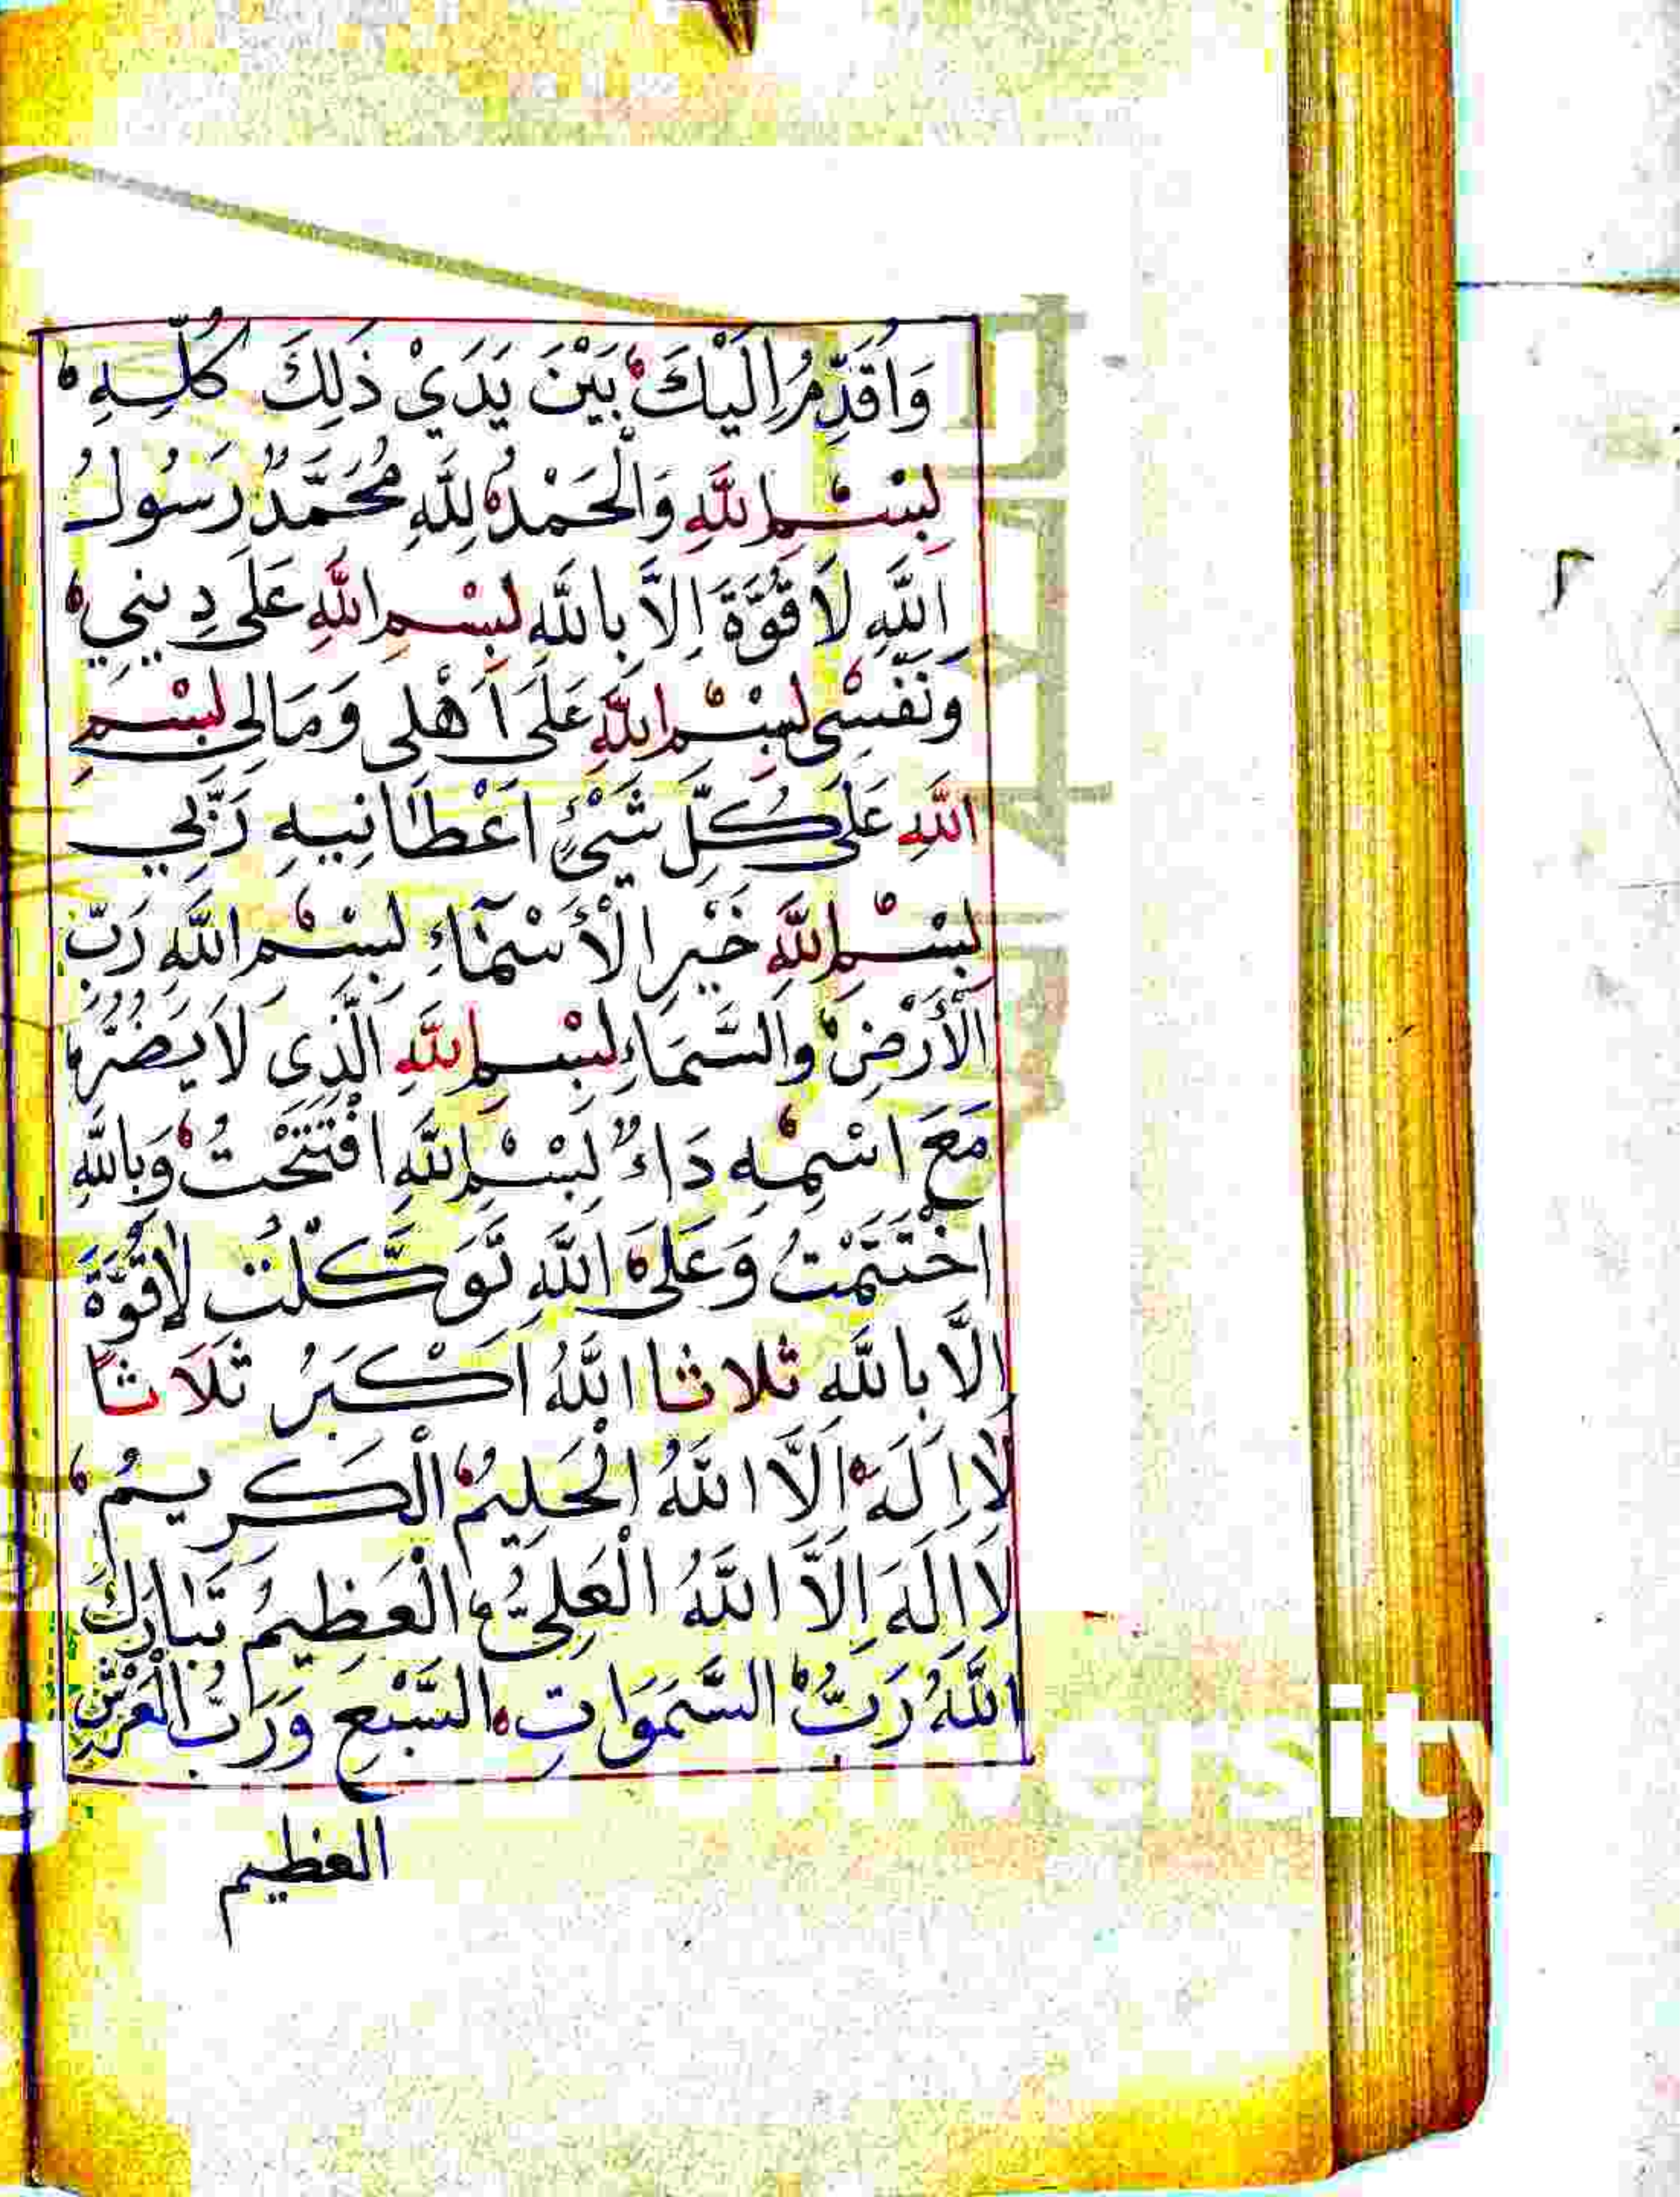 وَاُقَدِّمُ اِلَيْكَ بَيْنَ يَدَيْ ذَلِكَ كُلِّهِ
بِسْمِ اللَّهِ وَالْحَمْدُ لِلَّهِ مُحَمَّدٌ رَسُولُ
اللَّهِ لَا قُوَّةَ اِلَّا بِاللَّهِ بِسْمِ اللَّهِ عَلَى دِينِي
وَنَفْسِى بِسْمِ اللَّهِ عَلَى اَهْلِى وَمَالِى بِسْمِ
اللَّهِ عَلَى كُلِّ شَيْئٍ اَعْطَانِيهِ رَبِّي
بِسْمِ اللَّهِ خَيْرِ الْأَسْمَاءِ بِسْمِ اللَّهِ رَبِّ
الْأَرْضِ وَالسَّمَاءِ بِسْمِ اللَّهِ الَّذِى لَا يَضُرُّ
مَعَ اسْمِهِ دَاءٌ بِسْمِ اللَّهِ افْتَتَحْتُ وَبِاللَّهِ
اخْتَتَمْتُ وَعَلَى اللَّهِ تَوَكَّلْتُ لَا قُوَّةَ
اِلَّا بِاللَّهِ ثلاثا اللَّهُ اَكْبَرُ ثَلَاثًا
لَا اِلَهَ اِلَّا اللَّهُ الْحَلِيمُ الْكَرِيمُ
لَا اِلَهَ اِلَّا اللَّهُ الْعَلِىُّ الْعَظِيمُ تَبَارَكَ
اللَّهُ رَبُّ السَّمَوَاتِ السَّبْعِ وَرَبُّ الْعَرْشِ
العظيم
٢